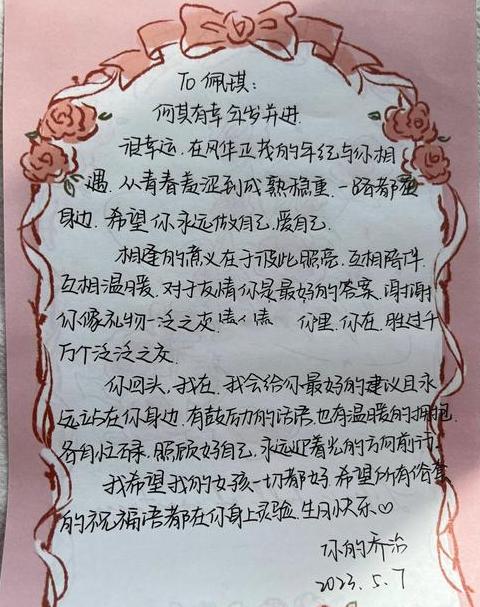 To 佩琪:
何其有幸 年岁并进.
很幸运.在风华正茂的年纪与你相
遇.从青春羞涩到成熟稳重.一路都在
身边.希望你永远做自己,爱自己.
相逢的意义在于彼此照亮.互相陪伴.
互相温暖.对于友情你是最好的答案.谢谢
你像礼物一 你在.胜过千
万个泛泛之交.
你回头,我在.我会给你最好的建议且永
远站在你身边.有鼓励的话语.也有温暖的拥抱.
各自忙碌.照顾好自己.永远迎着光的方向前行.
我希望我的女孩一切都好.希望所有
的祝福语都在你身上灵验.生日快乐♡
你的乔治
2023.5.7